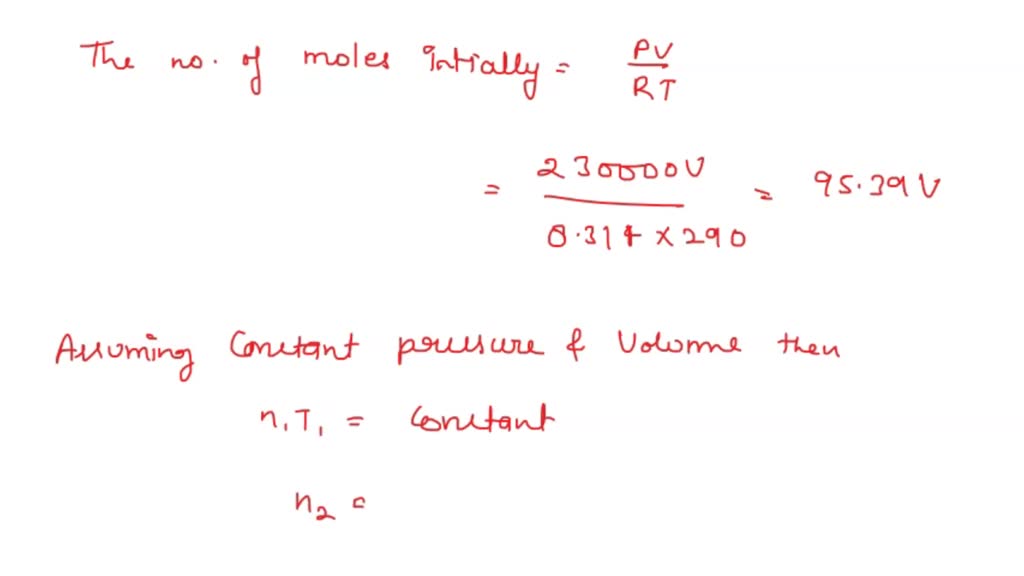 The no. of moles Intially = PV / RT
= 230000V / 8.314 x 290 = 95.39V
Assuming Constant pressure & Volume then
n₁T₁ = Constant
n₂ =